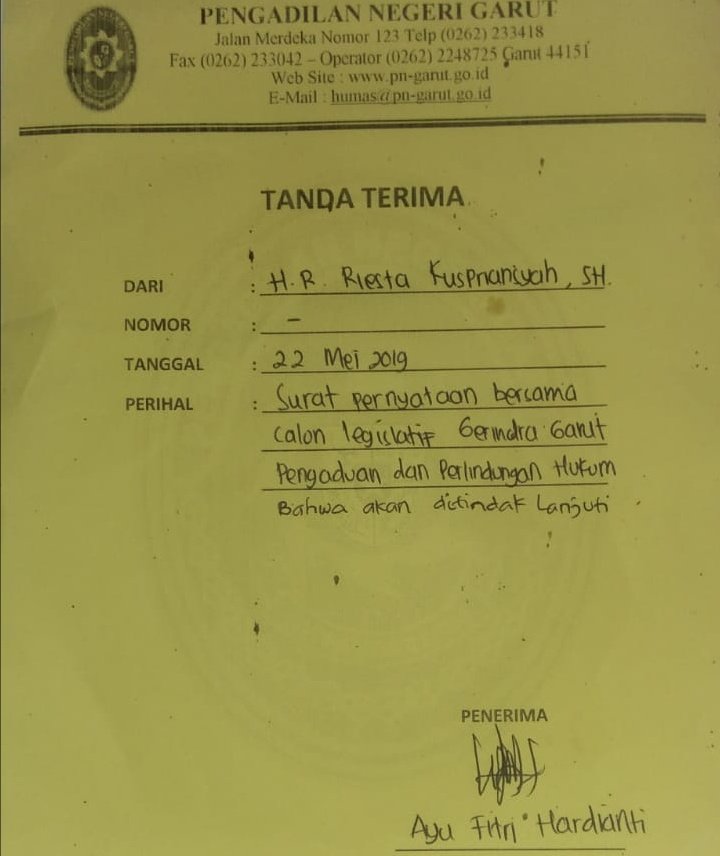 PENGADILAN NEGERI GARUT
Jalan Merdeka Nomor 123 Telp (0262) 233418
Fax (0262) 233042 – Operator (0262) 2248725 Garut 44151
Web Site : www.pn-garut.go.id
E-Mail : humas@pn-garut.go.id
TANDA TERIMA
DARI : H.R. Riesta Kuspriansyah, SH.
NOMOR : –
TANGGAL : 22 Mei 2019
PERIHAL : Surat pernyataan bersama
Calon legislatif Gerindra Garut
Pengaduan dan Perlindungan Hukum
Bahwa akan ditindak Lanjuti
PENERIMA
Ayu Fitri Hardianti